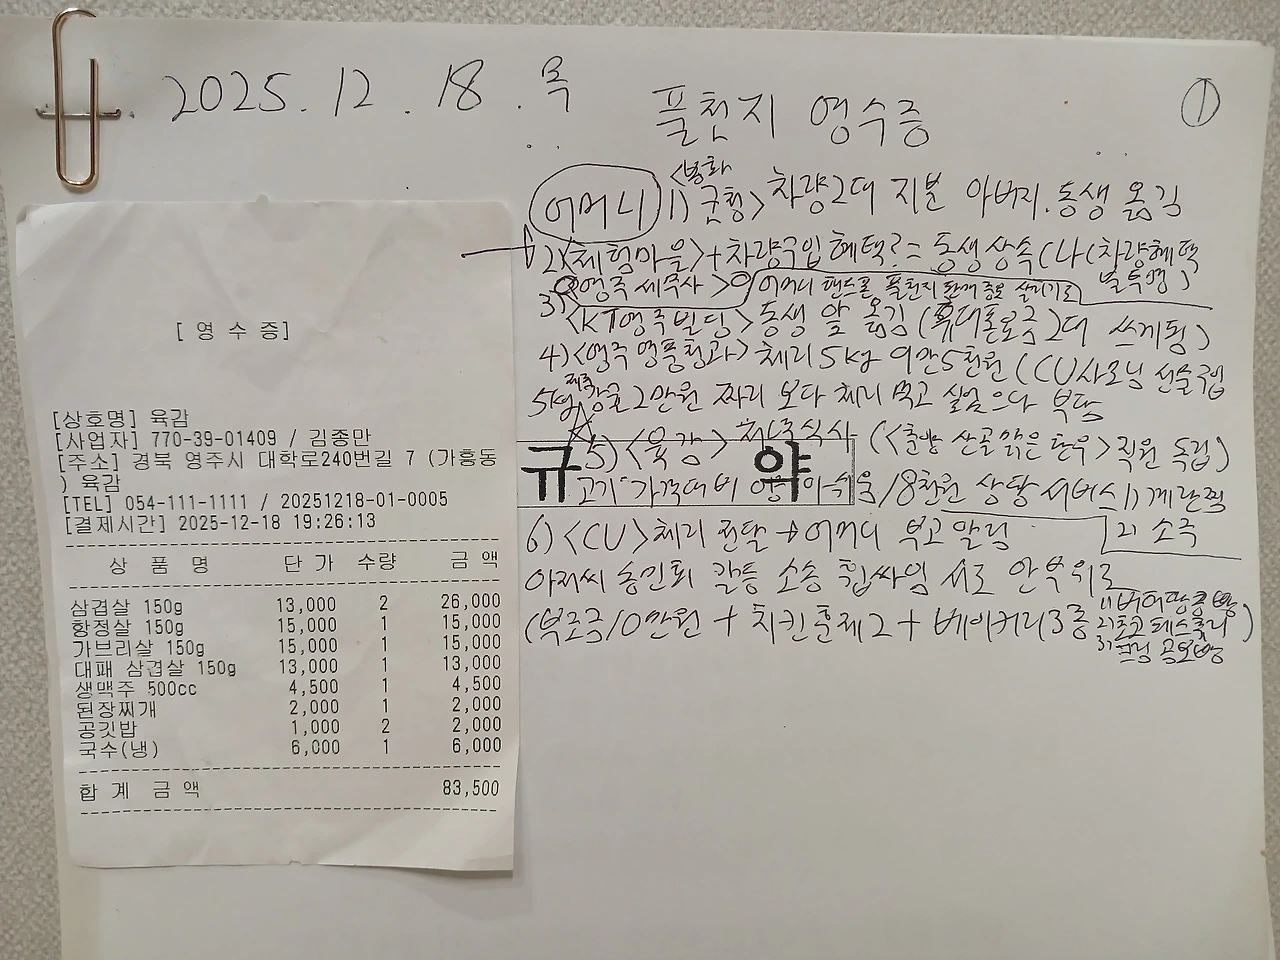 2025. 12. 18. 목
풀천지 영수증
①
어머니 1) <봉화 군청> 차량2대 지분 아버지.동생 옮김
2) <체험마을> + 차량구입 혜택?= 동생 상속 (나 (차량혜택 불투명)
<영주 세무사> 어머니 핸드폰 풀천지 판매 중로 살리기로
3) <KT영주빌딩> 동생 앞 옮김 (휴대폰요금 2대 쓰게됨)
4) <영주 영풍청과> 체리 5kg 9만5천원 (CU사모님 선물겸
5kg 제주 감귤 2만원 짜리 보다 체리 먹고 싶었으나 부담
5) <육감> 저녁식사 (<춘양 산골 맑은 한우> 직원 독립)
고기 가격대비 아쉬움/8천원 상당 서비스 1) 계란찜
2) 소주
6) <CU> 체리 전달 → 어머니 부고 알림
아저씨 송인회 갈등 소송 휩싸임 서로 안부위로
(부조금 10만원 + 치킨훈제2 + 베이커리3종 1) 버터땅콩빵
2) 초코페스츄리
3) 크림 곰보빵)
규 약
[영수증]
[상호명] 육감
[사업자] 770-39-01409 / 김종만
[주소] 경북 영주시 대학로240번길 7 (가흥동
) 육감
[TEL] 054-111-1111 / 20251218-01-0005
[결제시간] 2025-12-18 19:26:13
상 품 명 단 가 수량 금 액
삼겹살 150g 13,000 2 26,000
항정살 150g 15,000 1 15,000
가브리살 150g 15,000 1 15,000
대패 삼겹살 150g 13,000 1 13,000
생맥주 500cc 4,500 1 4,500
된장찌개 2,000 1 2,000
공깃밥 1,000 2 2,000
국수(냉) 6,000 1 6,000
합 계 금 액 83,500